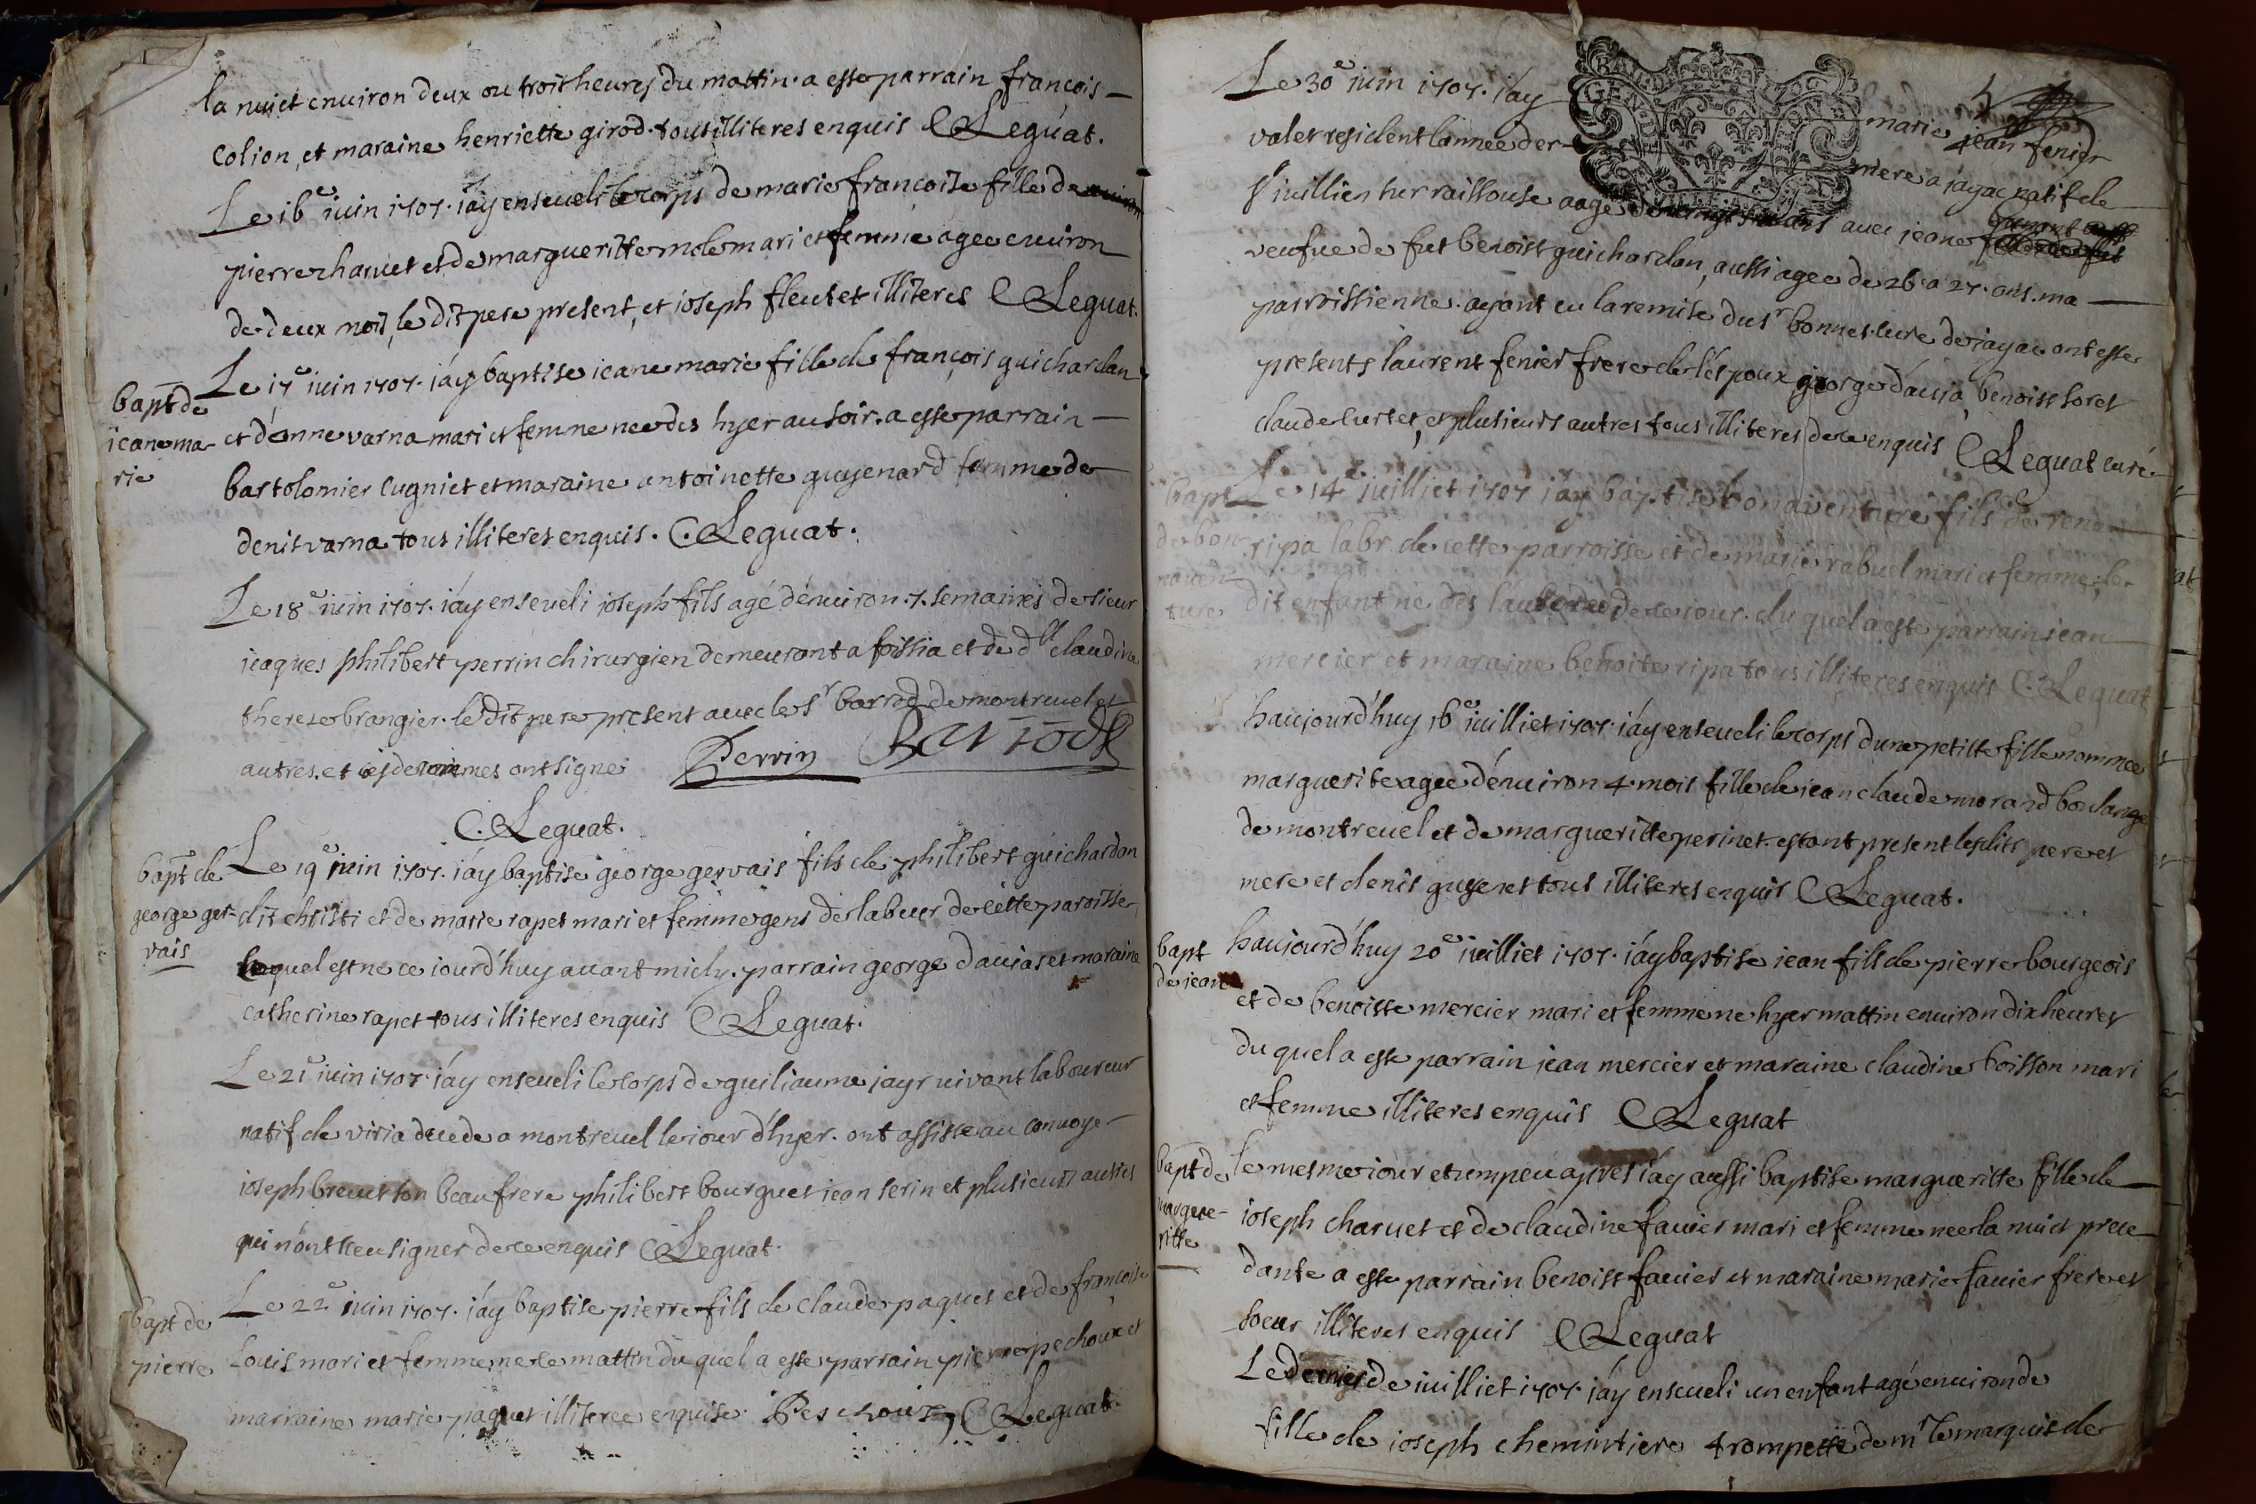 la nuict environ deux ou trois heures du mattin. a este parrain françois
Colion, et maraine henriette girod. tous illiteres enquis C Leguat.
Le 16e iuin 1707. i'ay enseveli le corps de marie francoise fille de
pierre charvet et de margueritte mole mari et femme agee environ
de deux mois, le dit pere present, et ioseph fleutet illiteres C Leguat.
bapt de
ieane ma-
rie
Le 17e iuin 1707. i'ay baptise ieane marie fille de françois guichardan
et d'anne varna mari et femme nee des hyer au soir. a este parrain
bartolomier cugniet et maraine antoinette guyenard femme de
denis varna tous illiteres enquis. C. Leguat.
Le 18e iuin 1707. i'ay enseveli ioseph fils agé d'environ .7. semaines de sieur
ieaques philibert perrin chirurgien demeurant a foissia et de dlle claudine
therese brangier. le dit pere present avec le sr barrod de montrevel et
autres. et ont signe Perrin Barrode
C. Leguat.
bapt de
george ger-
vais
Le 19e iuin 1707. i'ay baptise george gervais fils de philibert guichardan
dit christi et de marie rapet mari et femme gens de labeur de cette paroisse,
lequel est ne ce iourd'huy avant midy. parrain george daujas et maraine
catherine rapet tous illiteres enquis C Leguat.
Le 21e iuin 1707. i'ay enseveli le corps de guiliaume jayr vivant laboureur
natif de viria decede a montrevel le iour d'hyer. ont assiste au convoye
ioseph brevet son beaufrere philibert bourguet jean serin et plusieurs autres
qui n'ont sceu signer de ce enquis C Leguat.
bapt de
pierre
Le 22e iuin 1707. i'ay baptise pierre fils de claude paquet et de francoise
Louis mari et femme, ne le mattin du quel a este parrain pierre pechoux et
marraine marie paquet illiteree enquise. Pes choux, C Leguat.
Le 30e iuin 1707. i'ay marie jean fenier
valet resident l'annee derniere a jayac natif de
st iuillien avec jeane
veufve de fut benoist guichardan, aussi agee de 26. a 27. ans. ma
parroissienne. ayant eu la remise du sr bonnet cure de jayac ont este
presents laurent fenier frere de l'époux george daujà, benoist soret
claude curtet, et plusieurs autres tous illiteres de ce enquis C Leguat curé
bapt
de bon-
naven-
ture
Le 14e iuilliet 1707 i'ay baptise bonaventure fils de rene
ripa labr. de cette parroisse et de marie rabuel mari et femme, le
dit enfant ne dès l'aube de ce iour. du quel a este parrain jean
mercier et maraine benoite ripa tous illiteres enquis C. Leguat
haujourd'huy 16e iuilliet 1707. i'ay enseveli le corps d'une petitte fille nommee
marguerite agee d'environ 4. mois fille de jean claude morand boulange
de montrevel et de margueritte perinet. estant present lesdits pere et
mere et denis guyenet tous illiteres enquis C Leguat.
bapt
de jean
haujourd'huy 20e iuilliet 1707. i'ay baptise jean fils de pierre bourgeois
et de benoiste mercier mari et femme ne hyer mattin environ dix heures
du quel a este parrain jean mercier et maraine claudine boisson mari
et femme illiteres enquis C Leguat
bapt de
margue-
ritte
le mesme iour et un peu apres i'ay aussi baptise margueritte fille de
ioseph charvet et de claudine favier mari et femme nee la nuict prece
dante a este parrain benoist favier et maraine marie favier frere et
soeur illiteres enquis C Leguat
Le dernier de iuilliet 1707. i'ay enseveli un enfant agé environ de
fille de ioseph chemintiere trompette de mr le marquis de